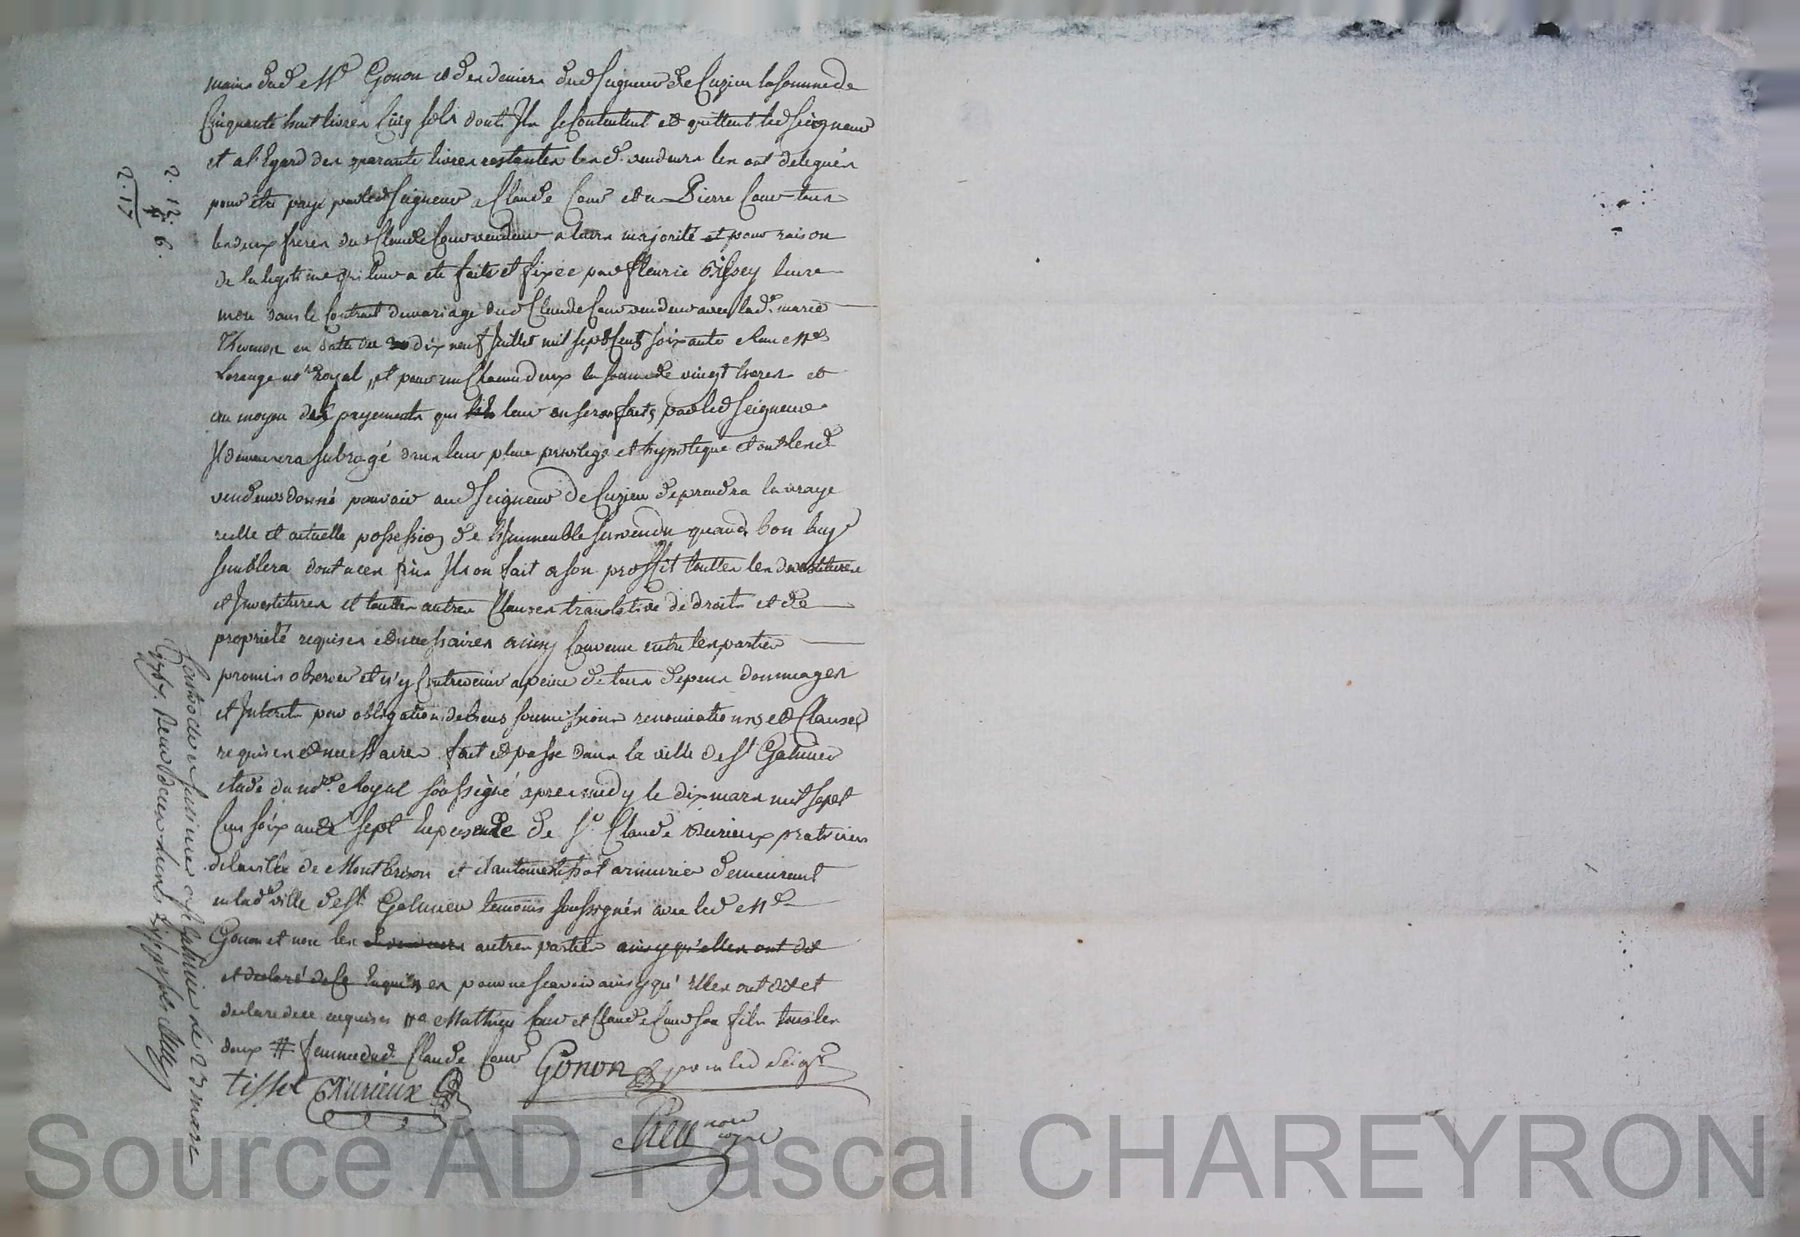 mains dud Mr Gonon et des deniers dud Seigneur de Cuzieu la somme de
Cinquante huit livres Cinq sols dont Ils se Contentent et quittent led Seigneur
et a l'Egard des quarante livres restantes lesd. vendeurs les ont deleguées
pour etre payé par led Seigneur a Claude Cour et a Pierre Cour tous
les deux freres dud Claude Cour vendeur a leurs majorité et pour raison
de la legitime qui leur a eté faite et fixée par fleurie leur
mere dans le Contrat de mariage dud Claude Cour vendeur avec lad. marie
Thevenon en datte du dix neuf Juillet mil sept Cent soixante Me
Lorange nore Royal, et pour un Chacun d'eux la somme de vingt livres et
au moyen des payements qui leur en seront faits par led Seigneur
Il demeurera subrogé dans leur place privilege et hypoteque et ont lesd
vendeurs donné pouvoir aud Seigneur de Cuzieu de prendre la vraye
reelle et actuelle possession de l'Immeuble survendu quand bon luy
semblera dont a ces fins Ils on fait a son proffit touttes les devestitures
et Investitures et touttes autres Clauses translative de droits et de
proprieté requises et necessaires ainsy Convenu entre les parties
promis observer et n'y Contrevenir a peine de tous depens dommages
et Interets par obligations de biens soumissions renonciations et Clauses
requises et necessaires fait et passé dans la ville de St Galmier
etude du nore Royal soussigné apres midy le dix mars mil sept
Cens soixante sept en presence de Sr Claude Durieux praticien
de la ville de Montbrison et d'antoine tissot armurier demeurant
en lad ville de St Galmier temoins soussignés avec led Mr
Gonon et non les autres parties ainsy qu'elles ont dit
et declaré de ce enquises pour ne scavoir ainsy qu'elles ont dit et
declaré de ce enquises Mathieu Cour et Claude Cour son fils tous les
deux # femme dud. Claude Cour
Gonon pour led Seigr
tissot Durieux
nore royal
2. 12. 6.
4
2. 17
Controlé a St Galmier le 23 mars
1767. Reçu